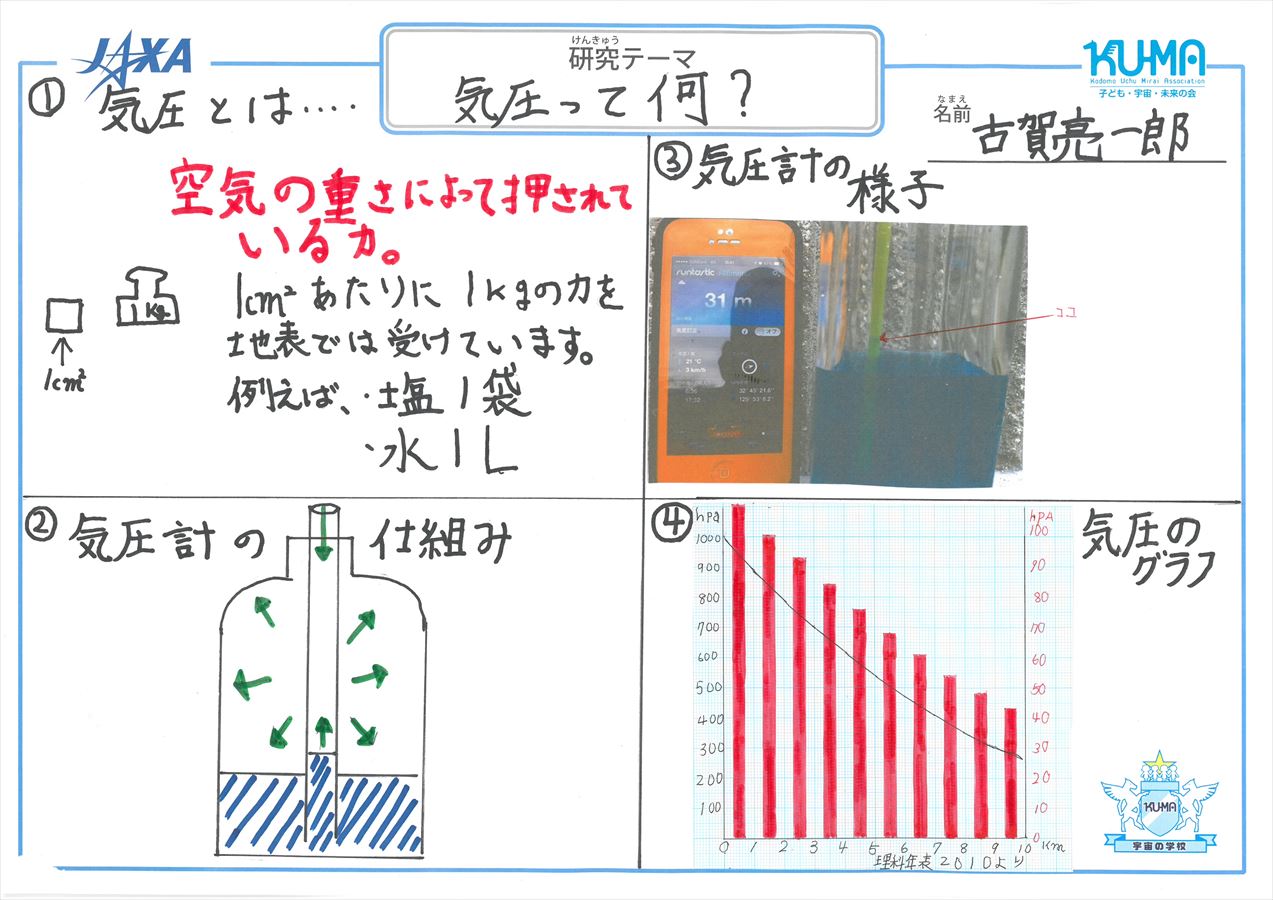 JAXA
けんきゅう
研究テーマ
気圧って何？
KU-MA
Kodomo Uchu Mirai Association
子ども・宇宙・未来の会
なまえ
名前
古賀亮一郎
① 気圧とは‥‥
空気の重さによって押されて
いる力。
1cm²あたりに1kgの力を
地表では受けています。
例えば、・塩1袋
・水1L
1kg
1cm²
② 気圧計の仕組み
③ 気圧計の
様子
runtastic
31 m
オフ
21 °C
3 km/h
17:32
ココ
④ 気圧の
グラフ
hPa
1000
900
800
700
600
500
400
300
200
100
0 1 2 3 4 5 6 7 8 9 10 Km
hPA
100
90
80
70
60
50
40
30
20
10
0
理科年表2010より
KU-MA
宇宙の学校